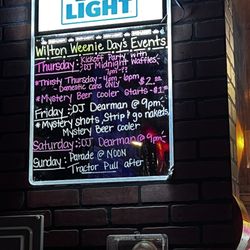 LIGHT
Wilton Weenie Day's Events
Thursday: Kickoff Party with
DJ Midnight Waffles
7pm-??
*Thirsty Thursday - 4pm - 6pm
Domestic cans only $2.00
*Mystery Beer cooler starts - $1
Friday: DJ Dearman @ 9pm
*Mystery shots, Strip & go nakeds,
Mystery Beer cooler
Saturday: DJ Dearman @ 9pm
Sunday: Parade @ NOON
Tractor Pull after